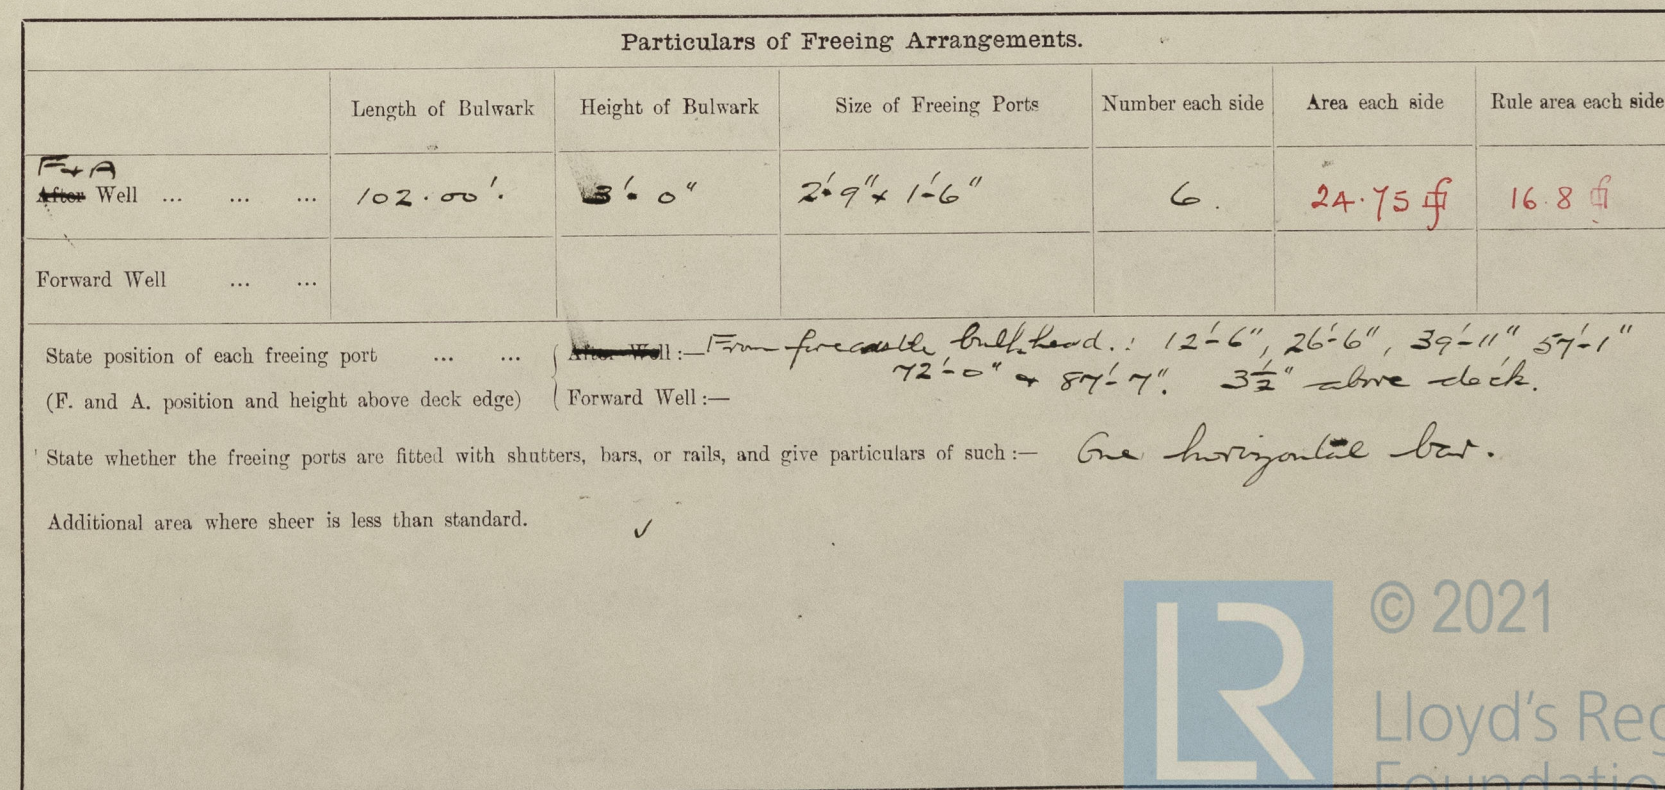 Particulars of Freeing Arrangements.
Length of Bulwark Height of Bulwark Size of Freeing Ports Number each side Area each side Rule area each side
F & A
After Well ... ... ... 102.00'. 3'-0" 2'-9" x 1'-6" 6. 24.75 16.8
Forward Well ... ...
State position of each freeing port ... ... After Well :— From forecastle bulkhead.: 12'-6", 26'-6", 39'-11", 57'-1"
72'-0" & 87'-7". 3½" above deck.
(F. and A. position and height above deck edge) Forward Well :—
State whether the freeing ports are fitted with shutters, bars, or rails, and give particulars of such :— One horizontal bar.
Additional area where sheer is less than standard. ✓
© 2021
LR
Lloyd's Reg
Foundatio